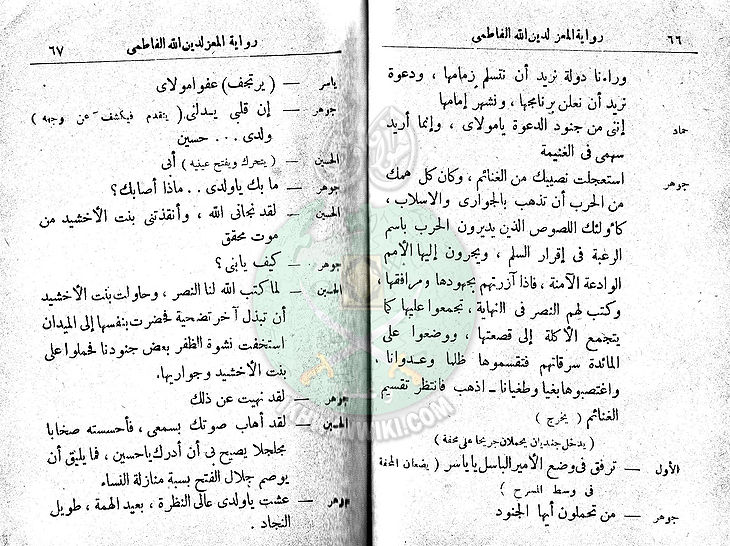 ٦٦
رواية المعز لدين الله الفاطمى
وراءنا دولة نريد أن نتسلم زمامها ، ودعوة
نريد أن نعلن برنامجها ، ونشهر إمامها
حماد إننى من جنود الدعوة يامولاى ، وإنما أريد
سهمى فى الغنيمة
جوهر استعجلت نصيبك من الغنائم ، وكان كل همك
من الحرب أن تذهب بالجوارى والاسلاب ،
كأولئك اللصوص الذين يديرون الحرب باسم
الرغبة فى إقرار السلم ، ويجرون إليها الأمم
الوادعة الآمنة ، فاذا آزرتهم بجهودها ومرافقها ،
وكتب لهم النصر فى النهاية ، تجمعوا عليها كما
يتجمع الأكلة إلى قصعتها ، ووضعوا على
المائدة سرقاتهم فتقسموها ظلما وعدوانا ،
واغتصبوها بغيا وطغيانا ـ اذهب فانتظر تقسيم
الغنائم ( يخرج )
( يدخل جنديان يحملان جريحا على محفة )
الأول — ترفق فى وضع الأمير الباسل ياياسر ( يضعان المحفة
فى وسط المسرح )
جوهر — من تحملون أيها الجنود
رواية المعز لدين الله الفاطمى
٦٧
ياسر — ( يرتجف ) عفوا مولاى
جوهر — إن قلبى يدلنى ( يتقدم فيكشف عن وجهه )
ولدى ... حسين
الحسين — ( يتحرك ويفتح عينيه ) أبى
جوهر — ما بك ياولدى .. ماذا أصابك ؟
الحسين — لقد نجانى الله ، وأنقذتنى بنت الأخشيد من
موت محقق
جوهر — كيف يابنى ؟
الحسين — لما كتب الله لنا النصر ، وحاولت بنت الأخشيد
أن تبذل آخر تضحية فحضرت بنفسها إلى الميدان
استخفت نشوة الظفر بعض جنودنا فحملوا على
بنت الأخشيد وجواريها .
جوهر — لقد نهيت عن ذلك
الحسين — لقد أهاب صوتك بسمعى ، فأحسسته صخابا
مجلجلا يصيح بى أن أدرك ياحسين ، فما يليق أن
يوصم جلال الفتح بسبة منازلة النساء
جوهر — عشت ياولدى عالى النظرة ، بعيد الهمة ، طويل
النجاد .
IKHWANWIKI.COM